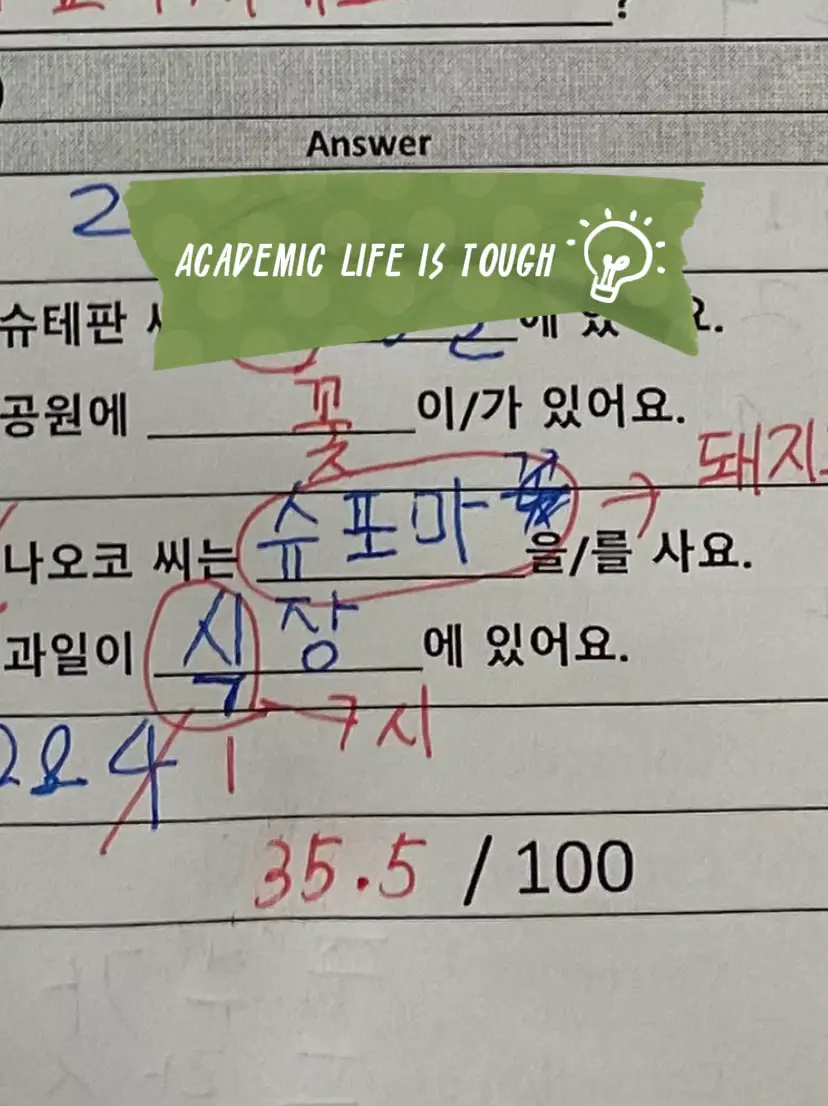 ?
Answer
2
ACADEMIC LIFE IS TOUGH
슈테판 에 있 요.
공원에 꽃 이/가 있어요.
나오코 씨는 슈포마 을/를 사요. → 돼지
과일이 식장 에 있어요.
1 ㄱ시
2 & 4
35.5 / 100